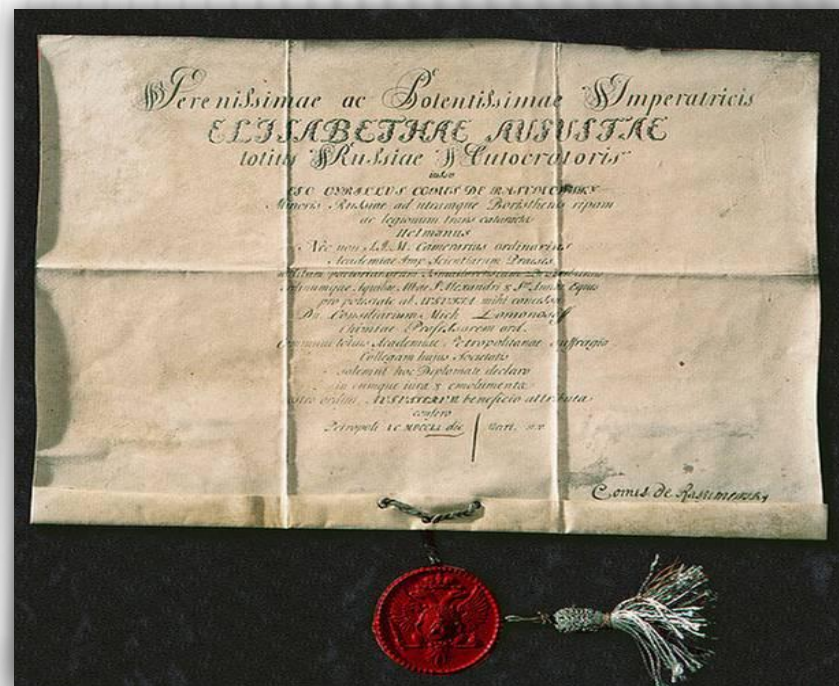 Serenissimae ac Potentissimae Imperatricis
ELISABETHAE AUGUSTAE
totius Russiae Autocratoris
iussu
EGO CYRILLUS COMES DE RASUMOWSKY
Minoris Russiae ad utramque Boristhenis ripam
ac legionum trans cataracta
Hetmanus
Nec non S.I.M. Camerarius ordinarius
Academiae Imp. Scientiarum Praeses
Ordinumque Aquilae Albae S. Alexandri & Stae Annae Eques
pro potestate ab AUGUSTA mihi concessa
Dn. Consiliarium Mich. Lomonosoff
Chimiae Professorem ord.
Communi totius Academiae Petropolitanae suffragio
Collegam hujus Societatis
solemni hoc Diplomate declaro
in eumque iura & emolumenta
ordini AUGUSTERUM beneficio attributa
confero
Petropoli die Mart.
Comes de Rasumowsky